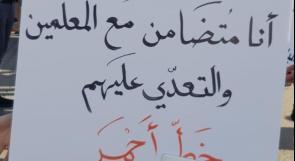 أنا مُتضَامن مع المعلمين
والتعدّي عليهم
خطّ أحمَر